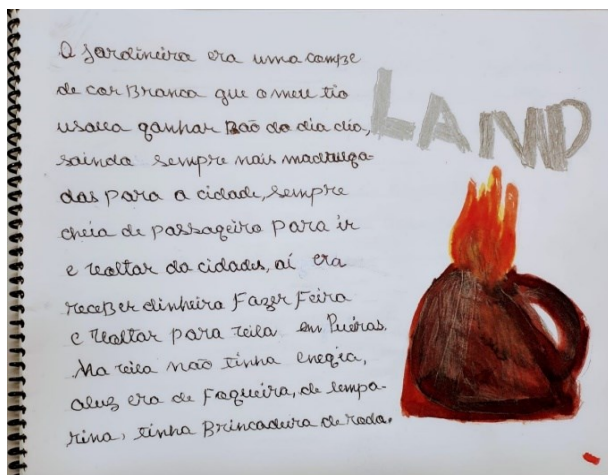 A Jardineira era uma combe
de cor Branca que o meu tio
usava ganhar Pão do dia dia,
saindo sempre nais madruga-
das para a cidade, sempre
cheia de passageiro para ir
e voltar da cidades, aí era
receber dinheiro Fazer Feira
e voltar para vila em Pueiras.
Na vila não tinha enegia,
aluz era de Fogueira, de lempa-
rina, tinha Brincadeira de roda.
LAND